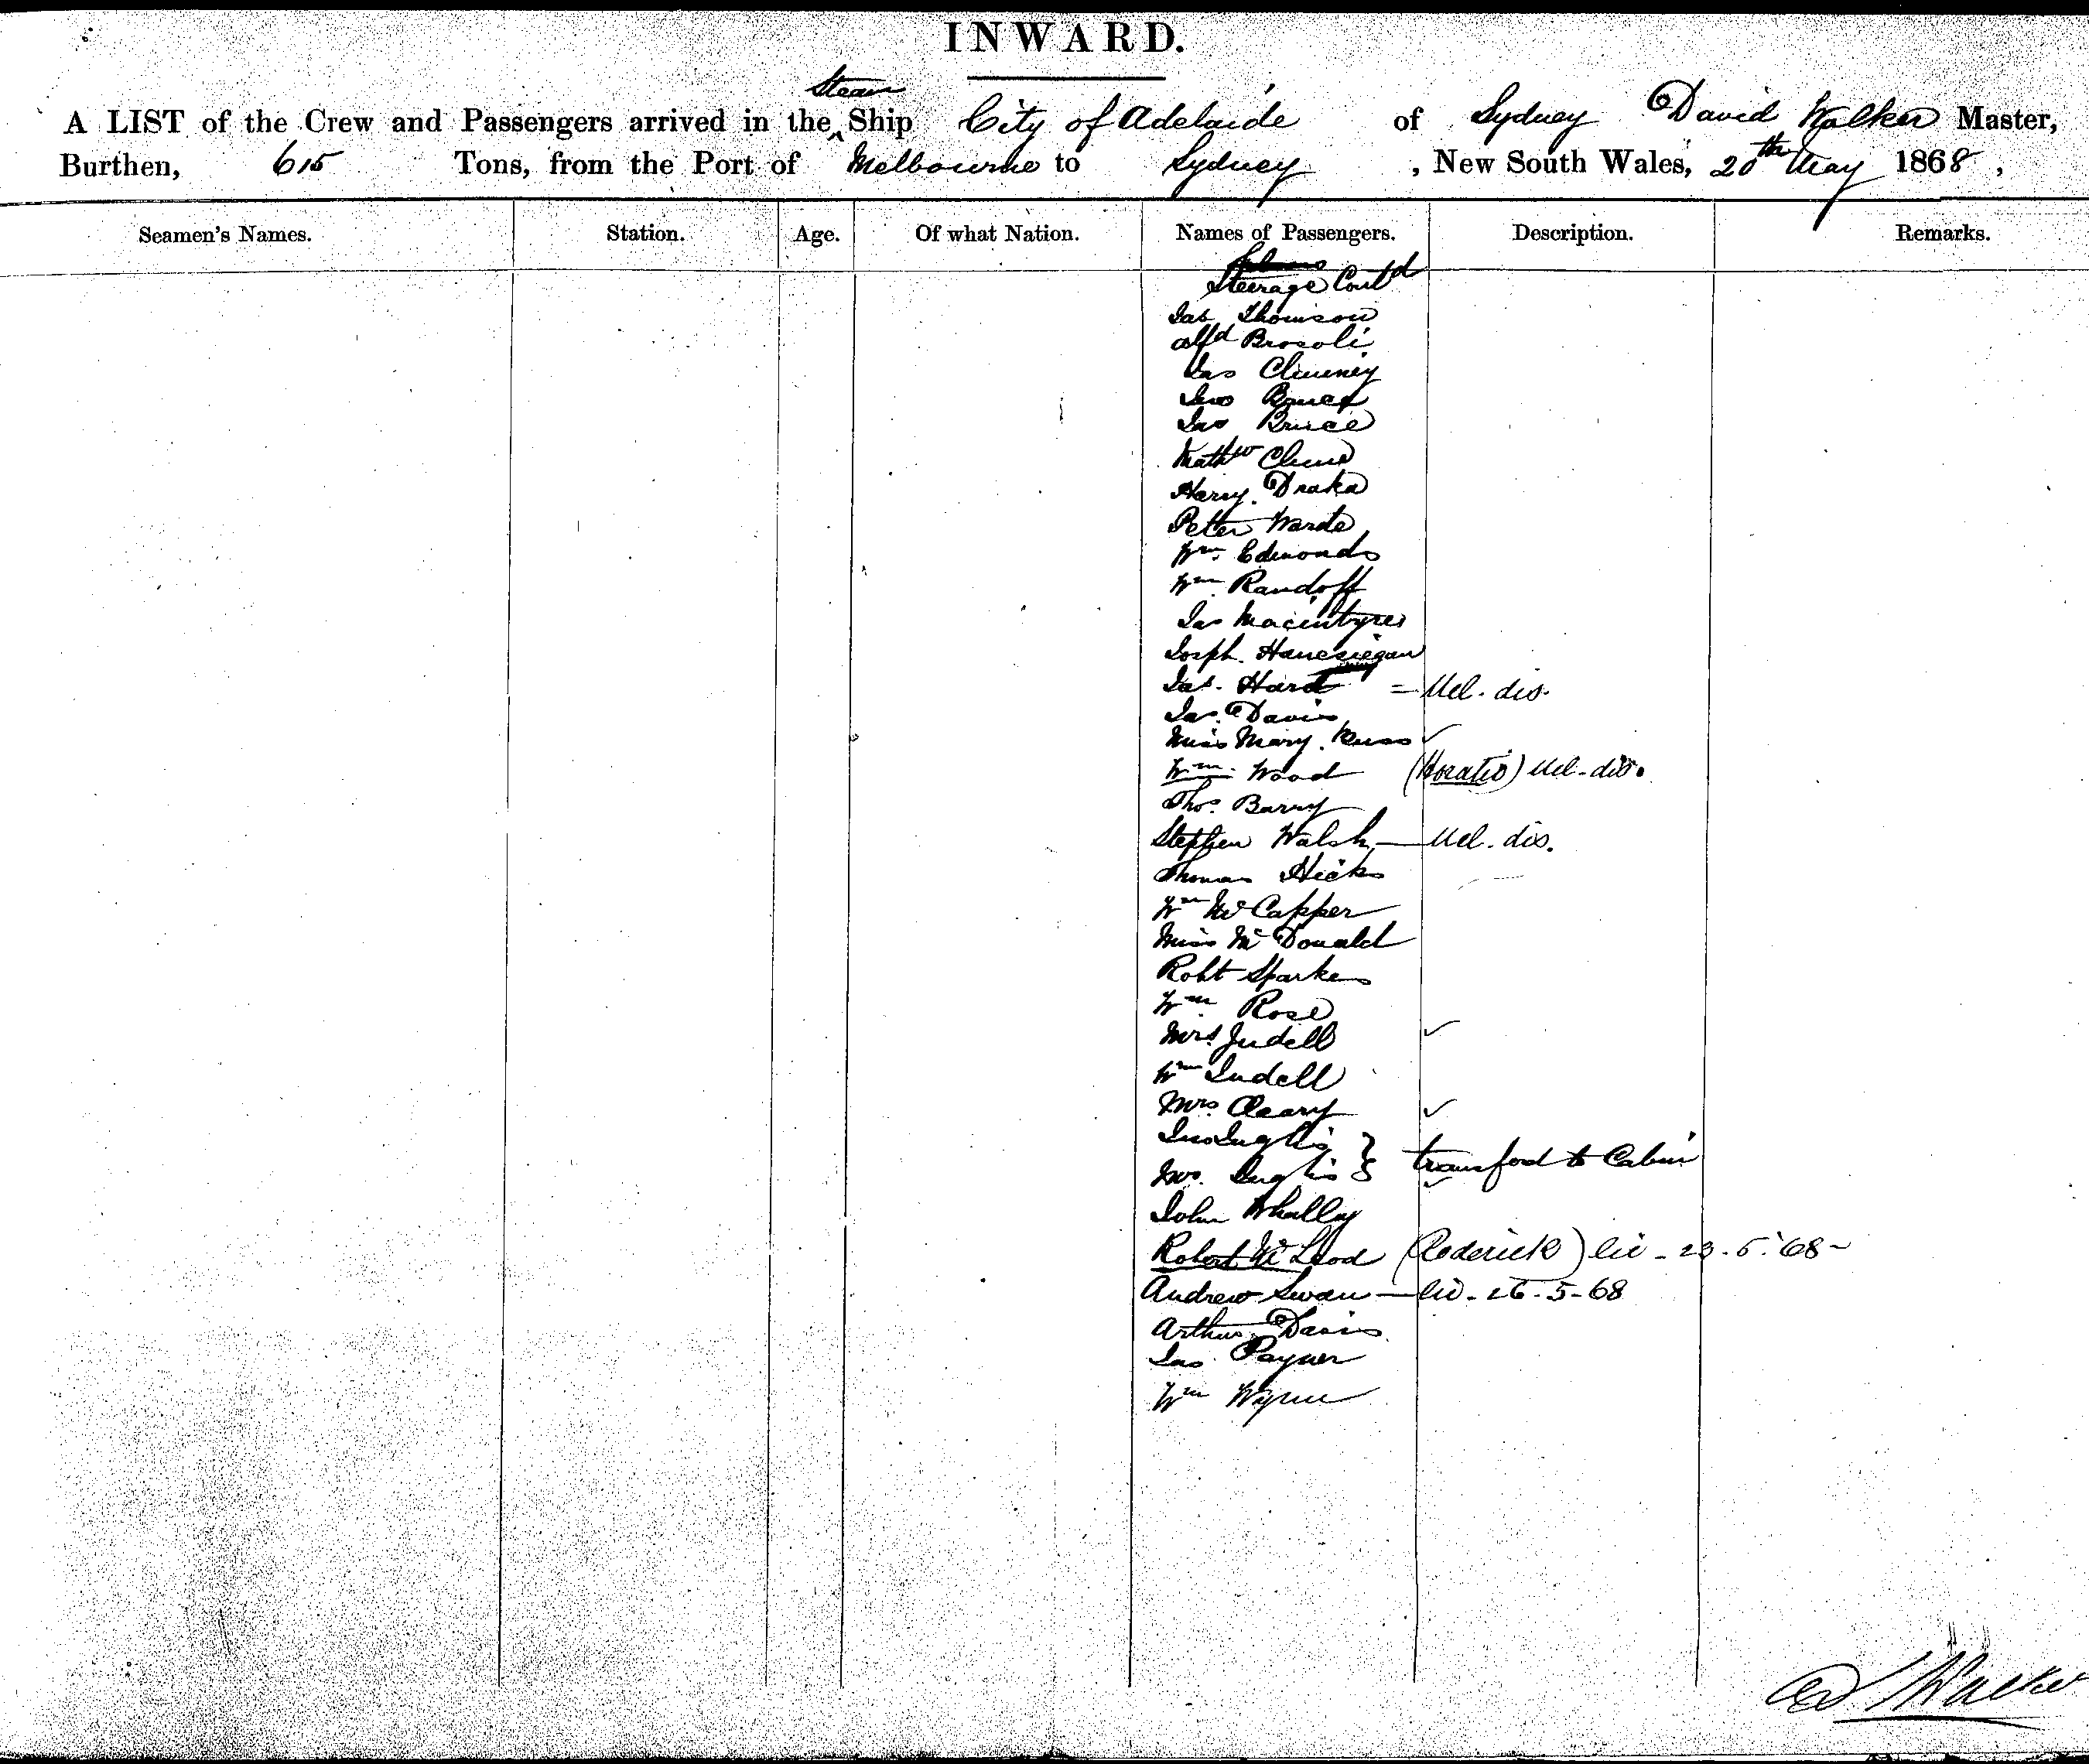 INWARD.
Steam
A LIST of the Crew and Passengers arrived in the Ship City of Adelaide of Sydney David Walker Master,
Burthen, 615 Tons, from the Port of Melbourne to Sydney , New South Wales, 20th May 1868 ,
Seamen's Names. Station. Age. Of what Nation. Names of Passengers. Description. Remarks.
Steerage Contd
Jas Thomson
Alfd Brosoli
Jas
Jno Bruce
Jas Bruce
Mathw Clune
Harry Drake
Peter Warde
Wm. Edmonds
Wm Randoff
Jas Macintyre
Josph.
Jas. Hard = Mel. dis.
Jas. Davis
Miss Mary Russ ✓
Wm. Wood (Horatio) Mel. dis.
Thos. Barry
Stephen Walsh — Mel. dis.
Thomas Hicks
Wm McCapper
Miss McDonald
Robt Sparkes
Wm Rose
Mrs. Judell ✓
Wm Judell
Mrs. Cleary ✓
Jno Inglis
Mrs. Inglis } transfed to Cabin
John Whalley
Robert McLeod (Roderick) lic - 23.5.'68 -
Andrew Swan — lic. 26-5-68
Arthur Davis
Jas Payner
Wm Wynne
D Walker